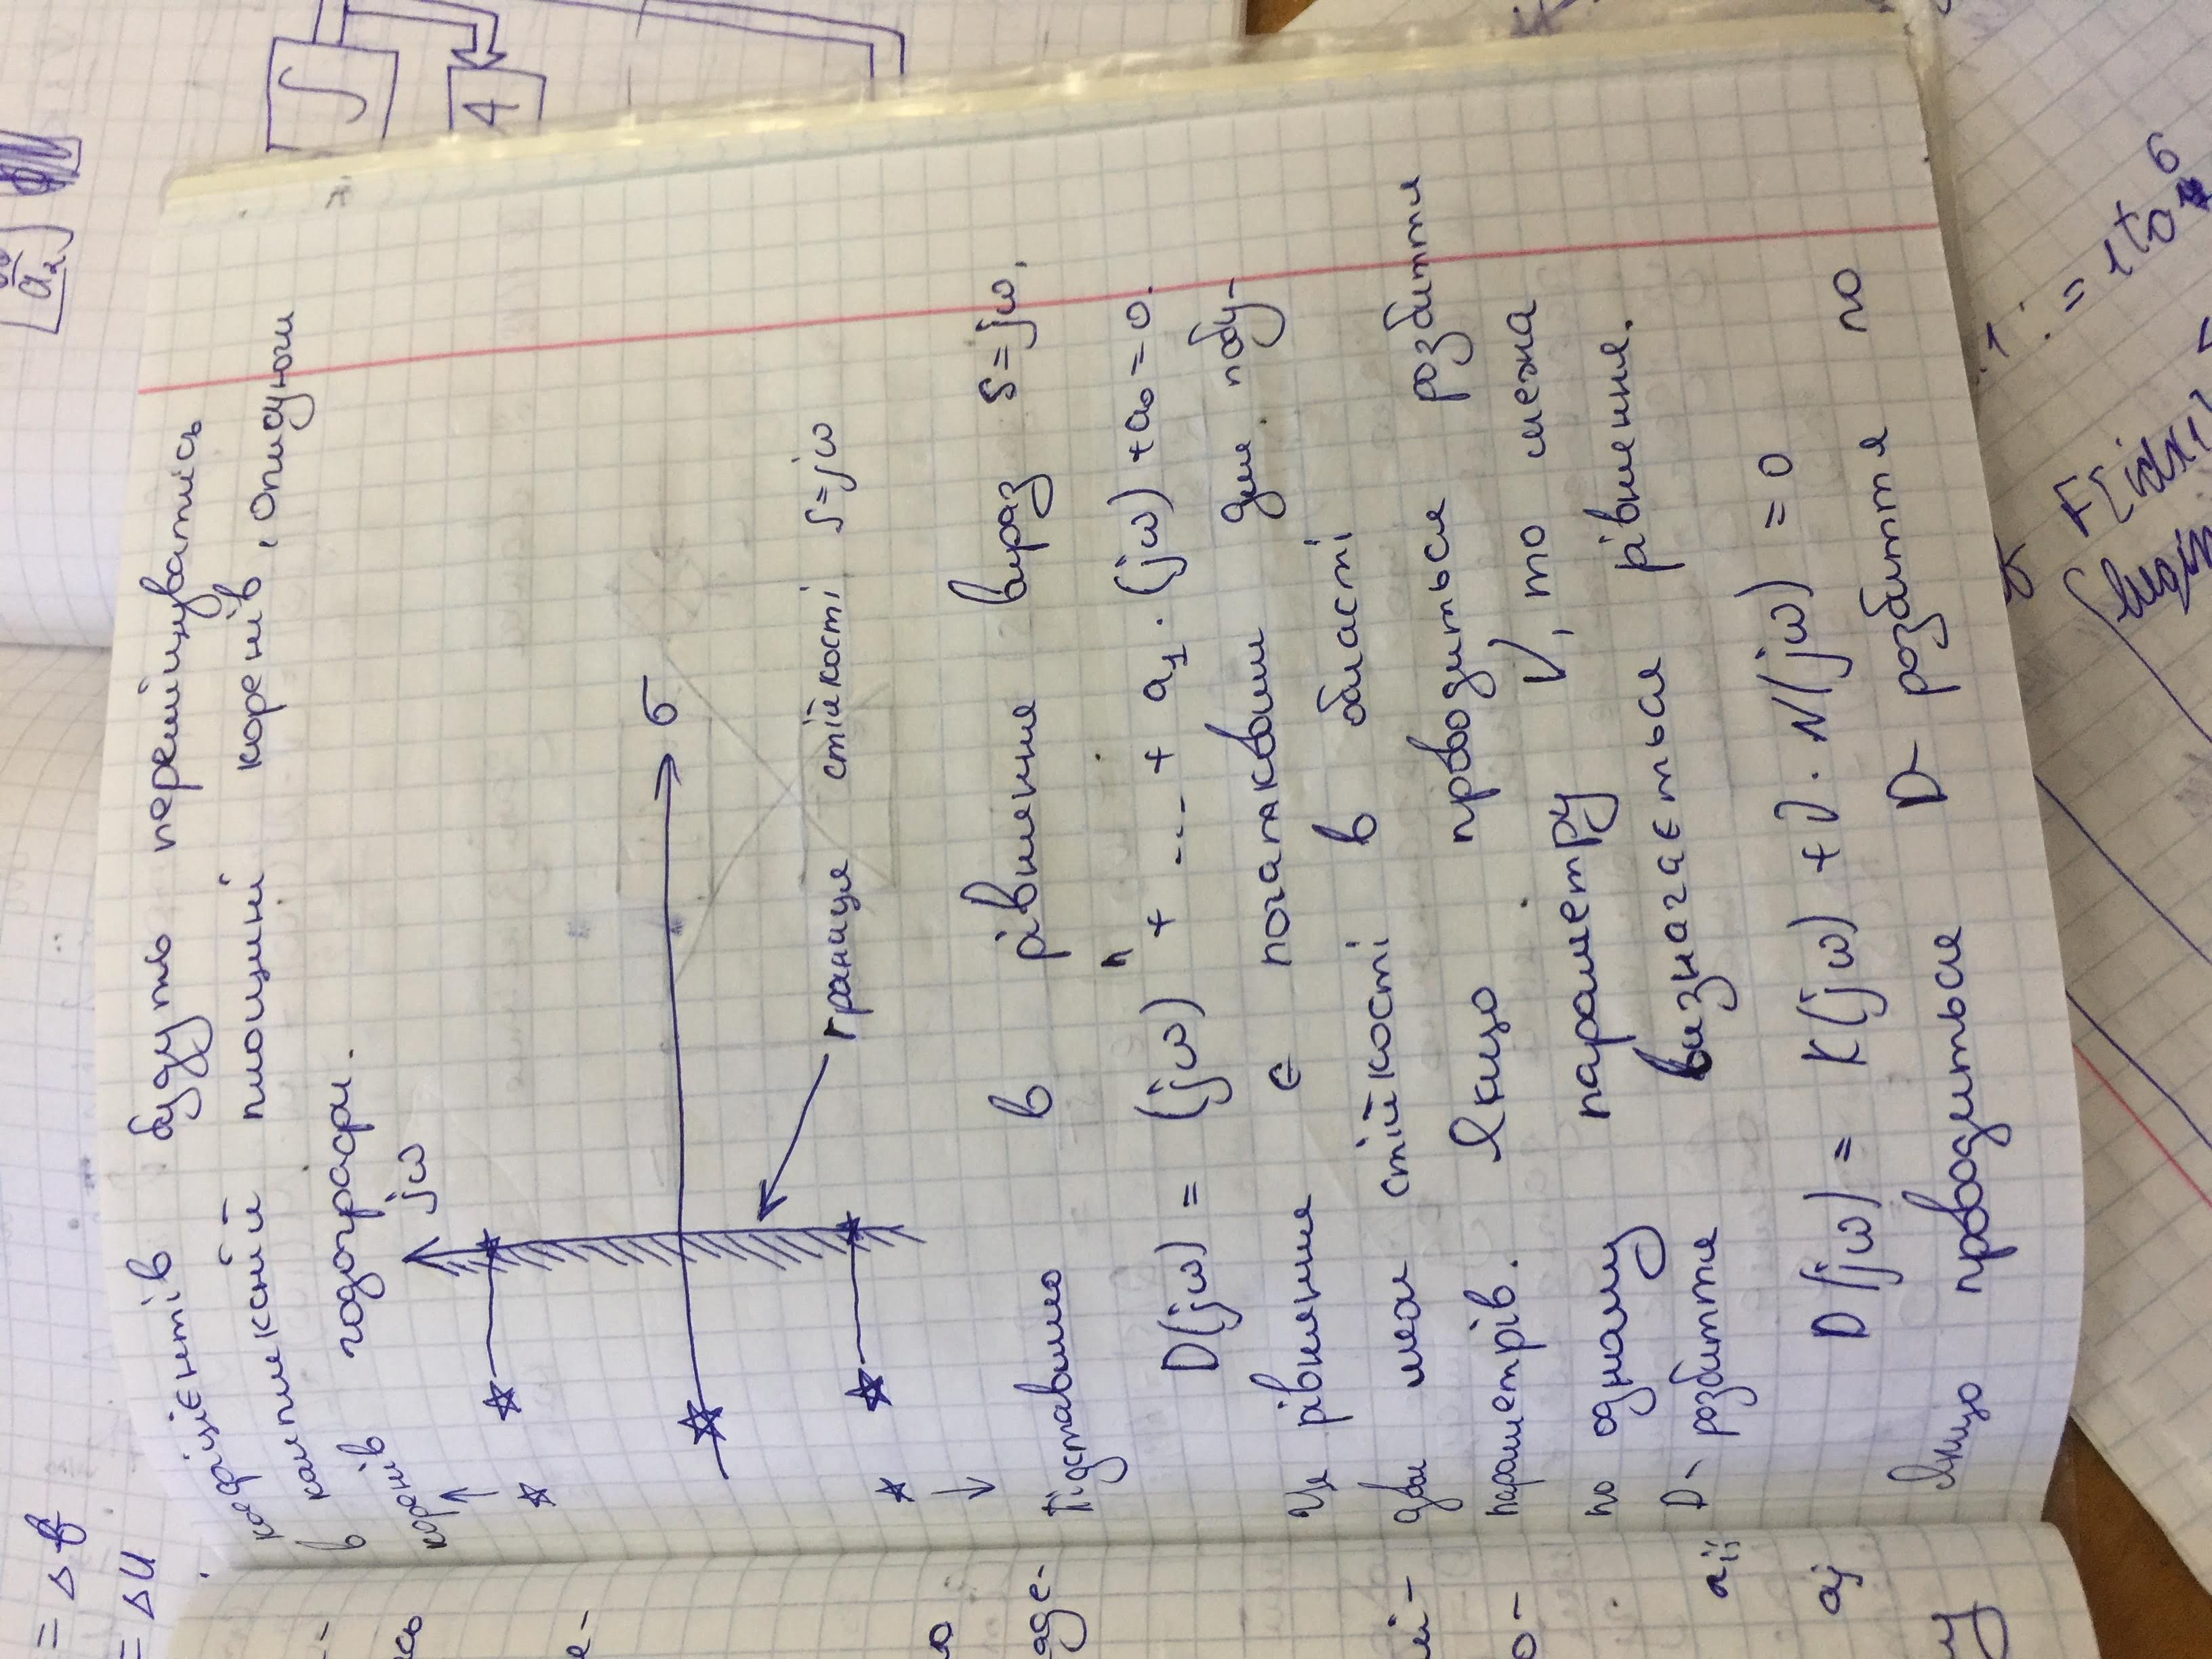 = Δf
= ΔU
a₂
коефіцієнтів будуть переміщуватись
в комплексній площині коренів, описуючи
коренів годографи.
jω
σ
границя стійкості s=jω
Підставимо в рівняння вираз s=jω,
D(jω) = (jω)ⁿ + ... + a₁·(jω) + a₀ = 0.
Це рівняння є початковим для побу-
дви меж стійкості в області
параметрів. Якщо проводиться розбиття
по одному параметру V, то межа
D- розбиття визначається рівняння.
D(jω) = K(jω) + V·N(jω) = 0
Якщо проводиться D- розбиття по
∫
A
сь
е-
ю
аде-
о-
aij
aj
му